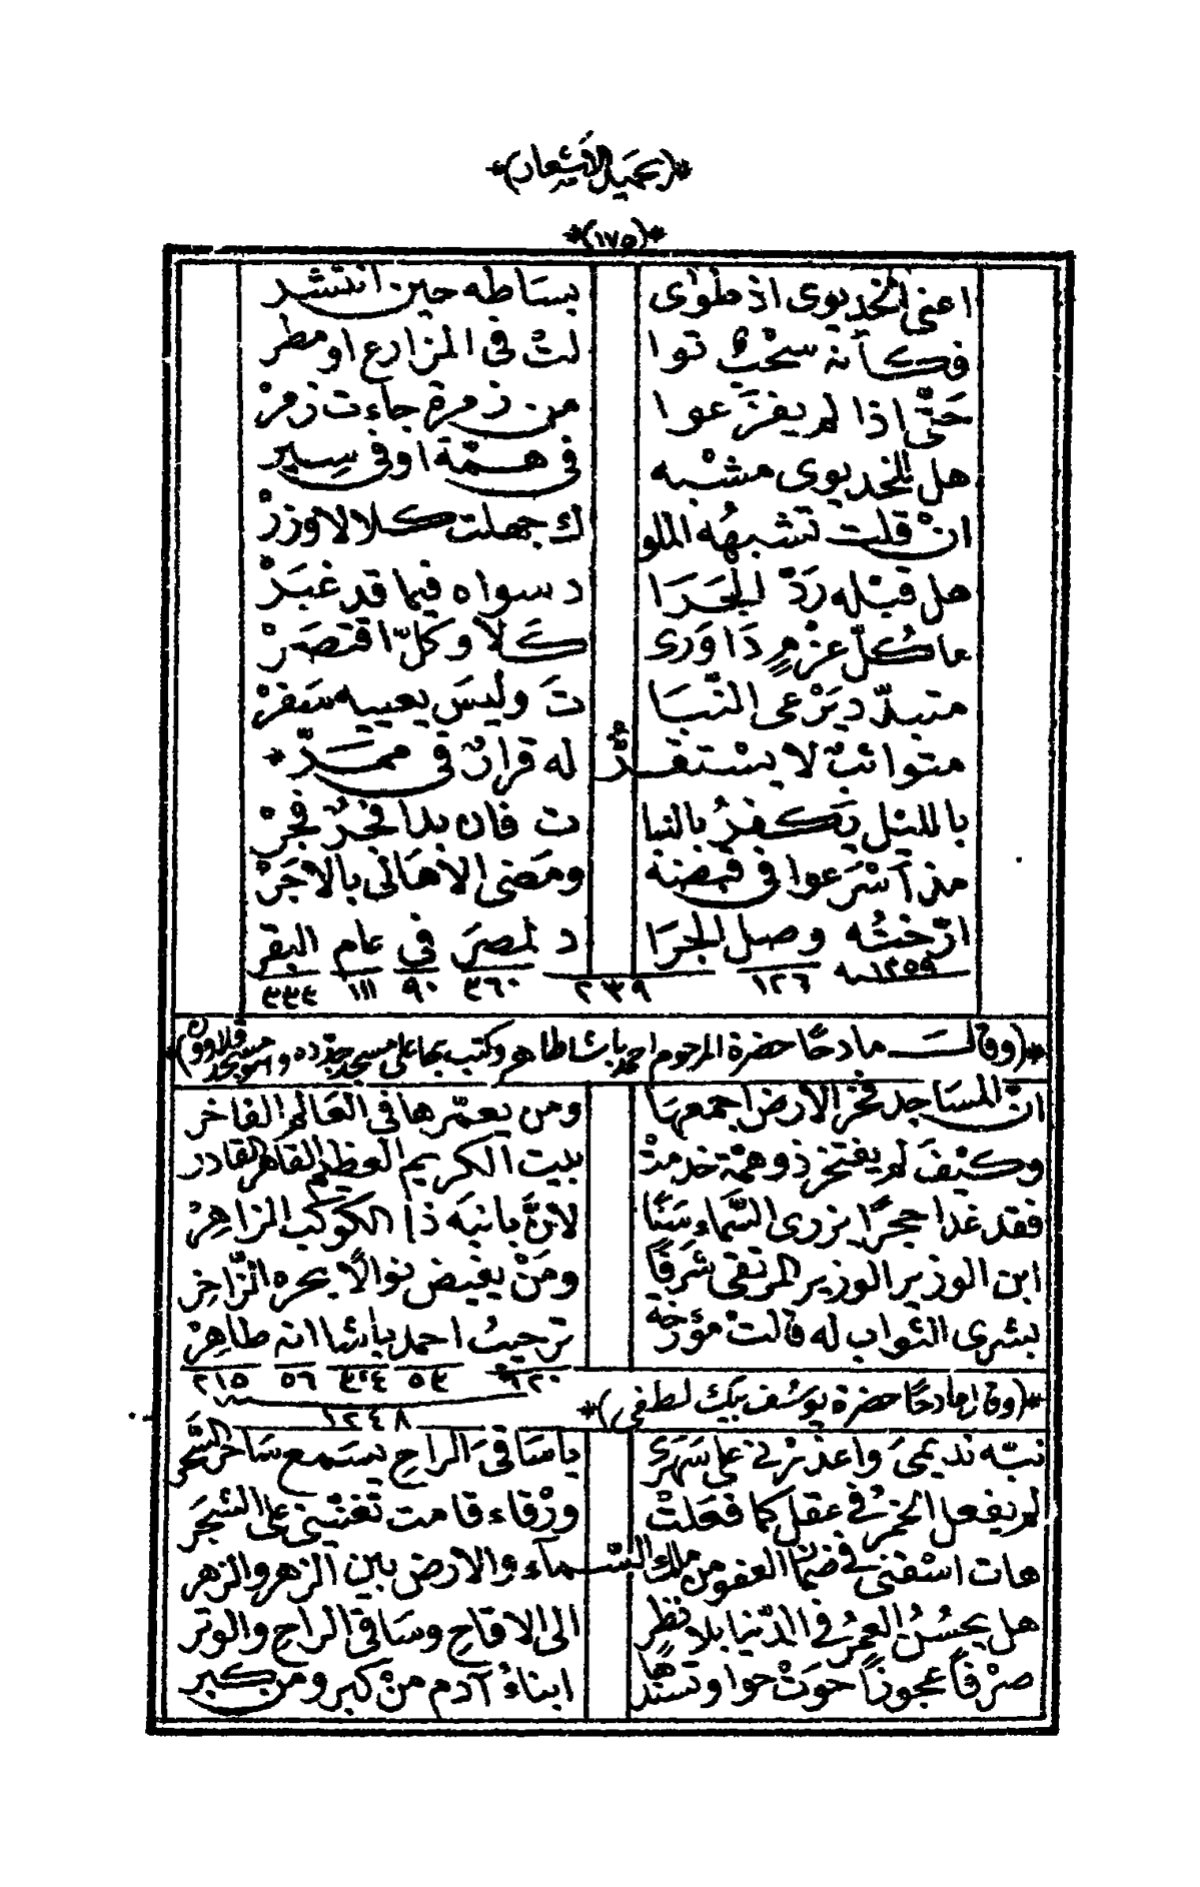 *(بحميل الأشعار)*
*(١٧٥)*
اعنى الخديوى اذ طوى بساطه حين انتشر
فكأنه سحْبٌ توا لتْ فى المزارع او مطر
حَتَّى اذا لم يفزَعوا من زمرة جاءت زمرْ
هل للخديوى مشْبه فى همّة او فى سِير
انْ قلت تشبهُه الملو ك جهلت كلا لا وزرْ
هل قبْله رَدّ الجَرَا د سواه فيما قد غبَرْ
ما كُلّ عزْمٍ دَا وَرى كَلا وكلّ اقتصَرْ
متبدّد يَرْعى النّبَا تَ وليسَ يعييه سَفرْ
متواثبٌ لا يسْتقرّ له قرارٌ فى ممَرّ *
بالليْل يَكفرُ بالنبا ت فان بدا فجرٌ فجرْ
مذ اَسْرَعوا فى قبضه ومَضى الأهَالى بالاجَرْ
ارّختُه وصل الجرَا د لمصرَ في عام البقر
١٢٥٩ ١٢٦ ٢٣٩ ٣٦٠ ٩٠ ١١١ ٣٣٤
*(وقالـت مادحًا حضرة المرحوم احمد باشا طاهر وكتب بها على مسجد جدّده وهو مسجد قلاوون)*
انّ المسَاجد فخر الأرض اجمعهَا ومن يعمّرها فى العَالم الفاخر
وكيْفَ لم يفتخر ذو همّة خدمتْ بيت الكريم العظيم القاهر القادر
فقد غدا حجرًا يزرى السَّماء سَنًا لانَّ بانيَه ذا الكوكب الزاهِرْ
ابن الوزير الوزير المرتقى شرَفًا ومَنْ يفيض نوالًا بحره الزّاخِر
بشرى الثواب له قالتْ مؤرّخةً ترحيبُ احمد باشا انه طاهِرْ
٦٢٠ ٥٣ ٣٠٤ ٥٦ ٢١٥
١٢٤٨
*(وقال مادحًا حضرة يوسُف بيك لطفى)*
نبّه نديمىَ واعذرْنى على سَهَرى يا سَاقىَ الراحِ يسَمع سَاحر السَّحَر
لم يفعل الخمرُ فى عقلى كما فعَلتْ ورْقاء قامت تغنّينى على الشجَر
هات اسْقنى فى ضمان العفو من ملك السّماء والارض بين الزهر والزهر
هل يحسُنُ العمرُ فى الدّنيا بلا نظرٍ الى الاقاحِ وسَاقى الراح والوتر
صرْفًا عجوزًا حوَتْ حوا وتسْندُها ابناءُ آدم منْ كبر ومن كبر